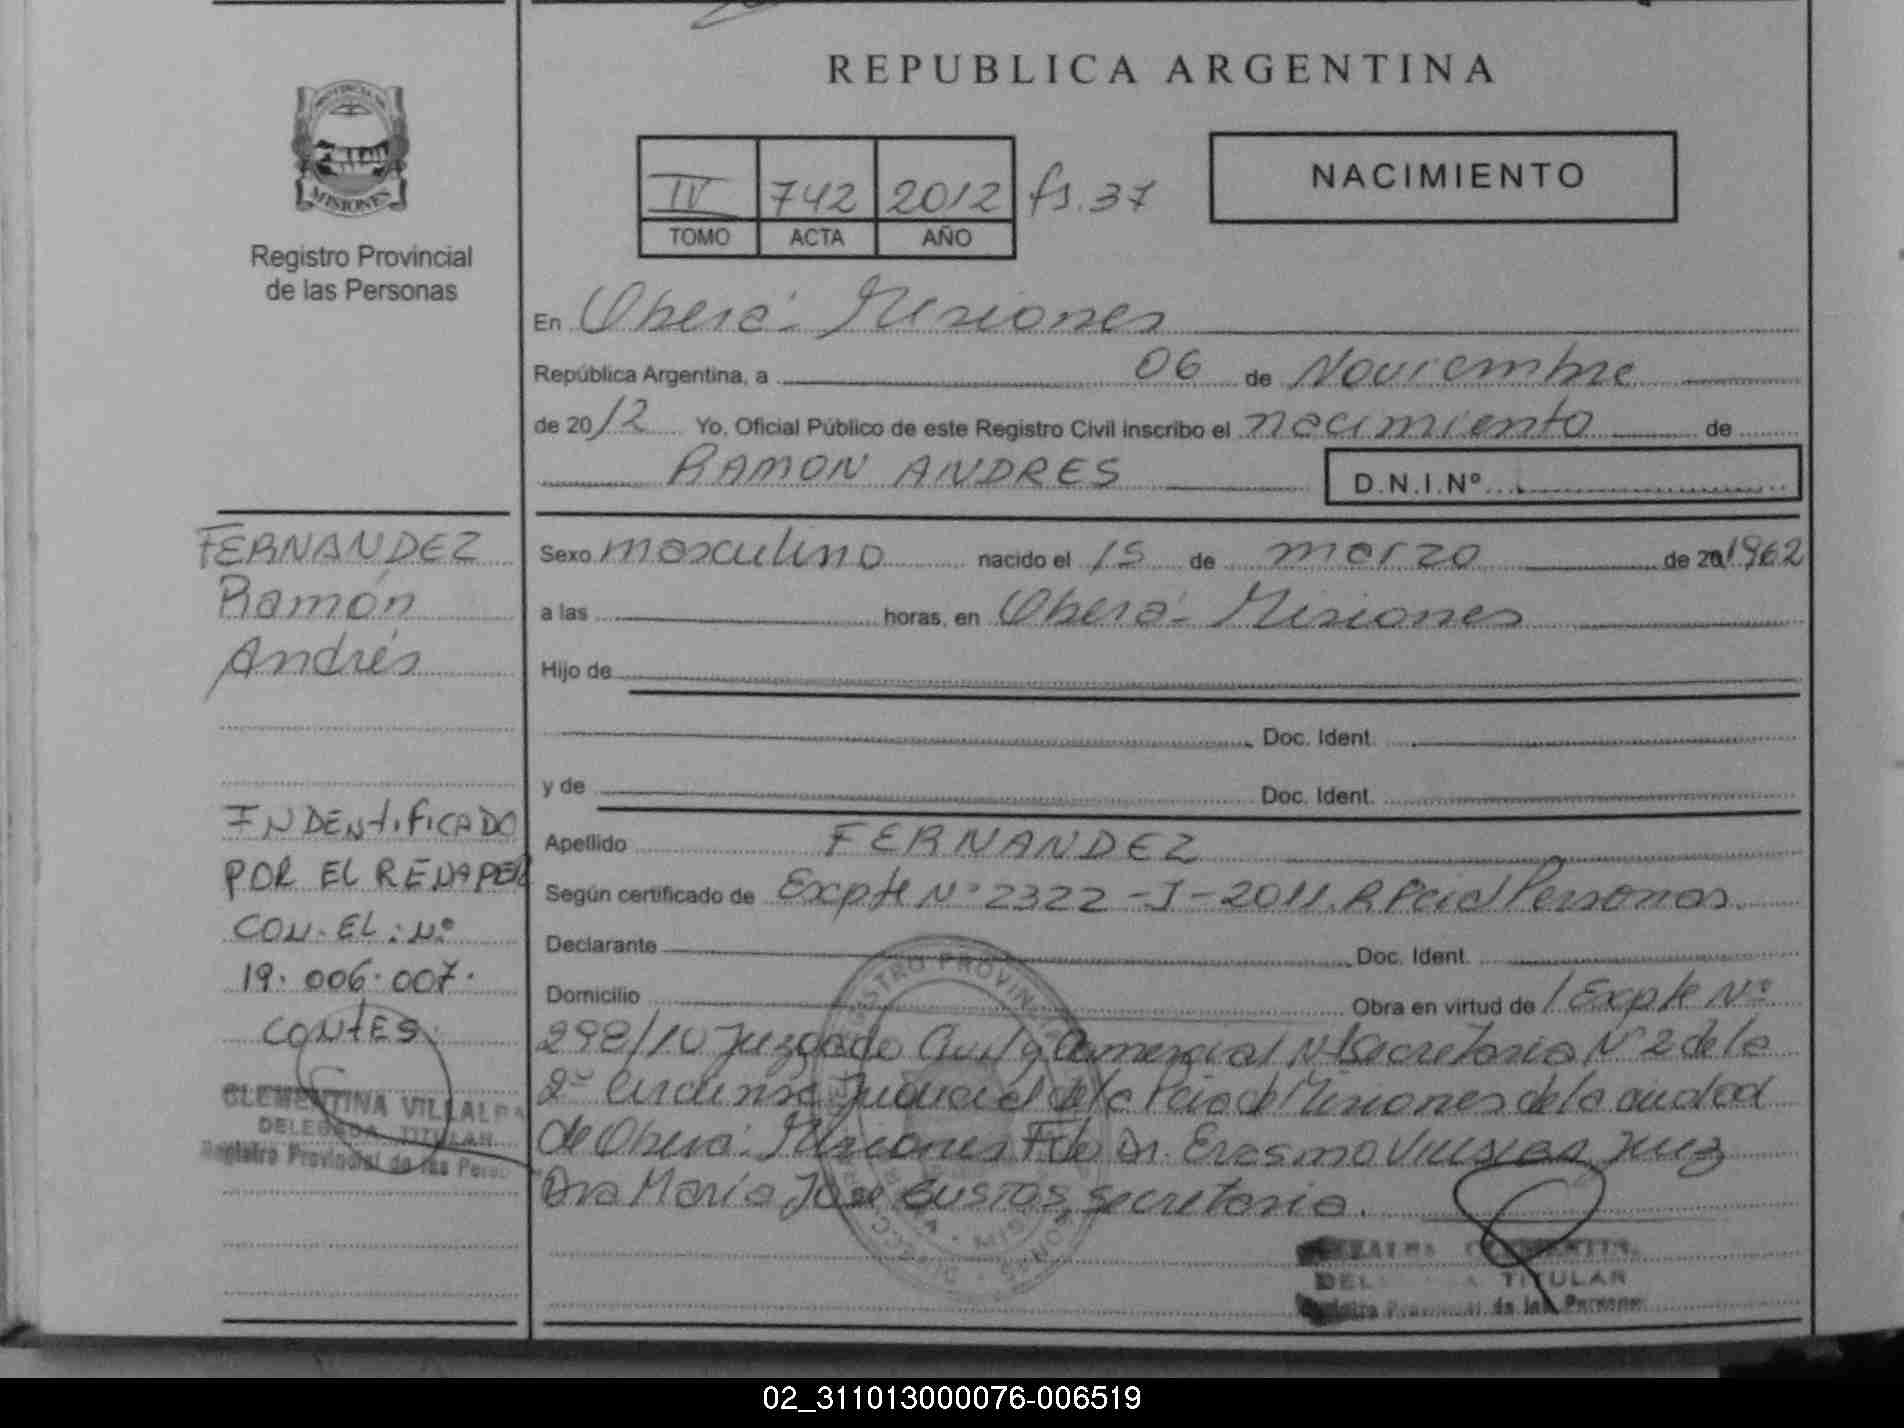 REPUBLICA ARGENTINA
PROVINCIA DE
MISIONES
Registro Provincial
de las Personas
IV 742 2012 fs. 37
TOMO ACTA AÑO
NACIMIENTO
En Oberá - Misiones
República Argentina, a 06 de Noviembre
de 2012 Yo, Oficial Público de este Registro Civil inscribo el nacimiento de
RAMON ANDRES D.N.I.Nº
Sexo masculino nacido el 15 de marzo de 20 1962
a las horas, en Oberá - Misiones
Hijo de
Doc. Ident.
y de Doc. Ident.
Apellido FERNANDEZ
Según certificado de Expte Nº 2322 - J - 2011. R Pcial Personas.
Declarante Doc. Ident.
Domicilio Obra en virtud de Expte Nº
298/10 Juzgado Civil y Comercial Nº Secretaria Nº 2 de la
2º Circunsc Judicial de la Pcia de Misiones de la ciudad
de Oberá - Misiones Fdo Dr. Erasmo Juez
Dra María Jose BUSTOS, secretaria.
CLEMENTINA
TITULAR
Provincial de las Personas
FERNANDEZ
Ramón
Andrés
INDENTIFICADO
POR EL RENAPER
CON. EL : Nº
19. 006. 007.
CONTES.
CLEMENTINA VILLALBA
DELEGADA TITULAR
Registro Provincial de las Perso
REGISTRO PROVINCIAL
02_311013000076-006519